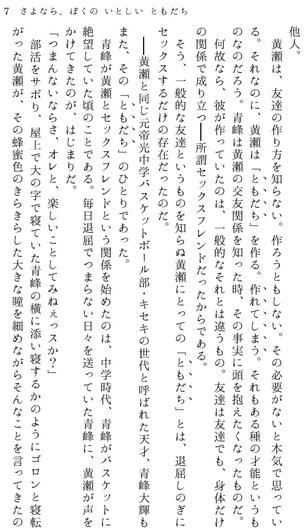 7 さよなら、ぼくの いとしい ともだち
他人。
　黄瀬は、友達の作り方を知らない。作ろうともしない。その必要がないと本気で思ってい
る。それなのに、黄瀬は「ともだち」を作る。作れてしまう。それもある種の才能というも
のなのだろう。青峰は黄瀬の交友関係を知った時、その事実に頭を抱えたくなったものだ。
　何故なら、彼が作っていたのは、一般的なそれとは違うもの。友達は友達でも、身体だけ
の関係で成り立つ――所謂セックスフレンドだったからである。
　そう、一般的な友達というものを知らぬ黄瀬にとっての「ともだち」とは、退屈しのぎに
セックスするだけの存在だったのだ。
　――黄瀬と同じ元帝光中学バスケットボール部・キセキの世代と呼ばれた天才、青峰大輝も
また、その「ともだち」のひとりであった。
　青峰が黄瀬とセックスフレンドという関係を始めたのは、中学時代、青峰がバスケットに
絶望していた頃のことである。毎日退屈でつまらない日々を送っていた青峰に、黄瀬が声を
かけてきたのが、はじまりだ。
「つまんないならさ、オレと、楽しいことしてみねえっスか？」
　部活をサボり、屋上で大の字で寝ていた青峰の横に添い寝するかのようにゴロンと寝転
がった黄瀬が、その蜂蜜色のきらきらした大きな瞳を細めながらそんなことを言ってきたの